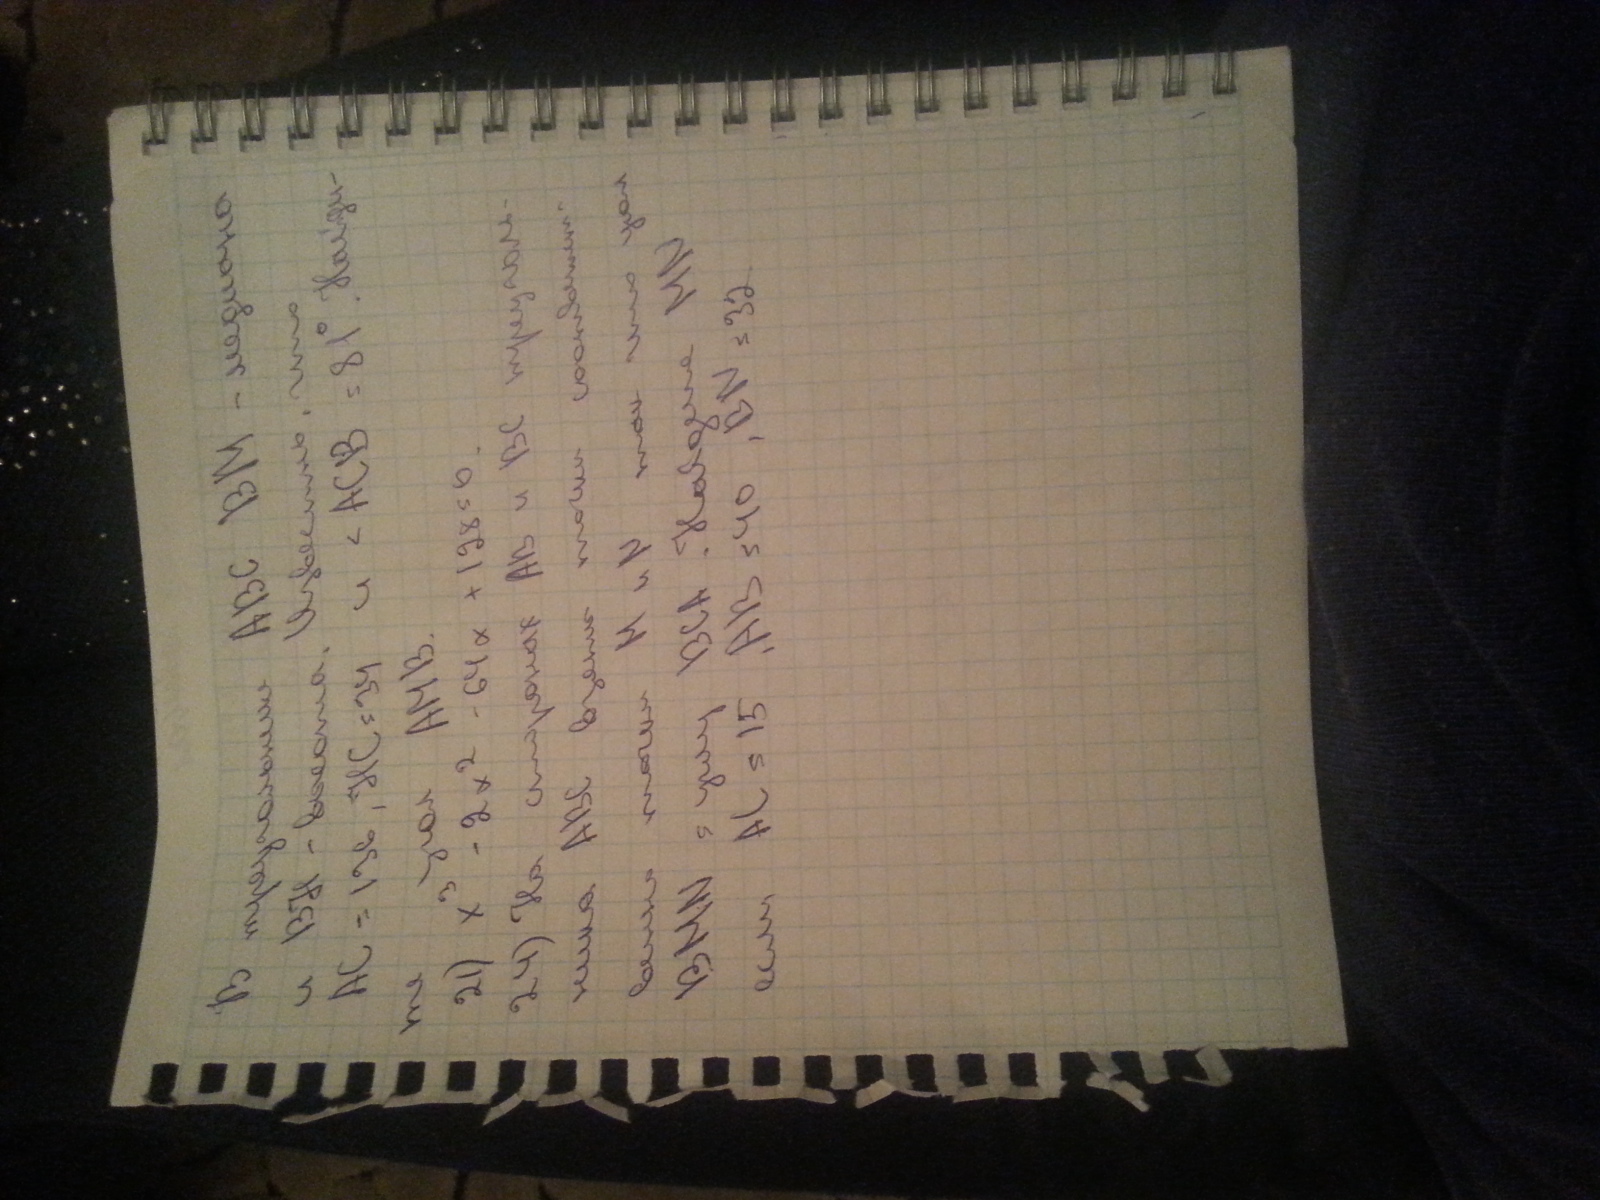 В треугольнике АВС ВМ - медиана
и ВН - высота. Известно, что
АС = 136, НС = 34 и < АСВ = 81°. Найди-
те угол АМВ.
21) x³ - 2x2 - 64x + 128 = 0.
24) На сторонах АВ и ВС треуголь-
ника АВС взяты точки соответст-
венно точки М и N так что угол
BMN = углу ВСА. Найдите MN
если АС = 15, АВ = 40, BN = 32